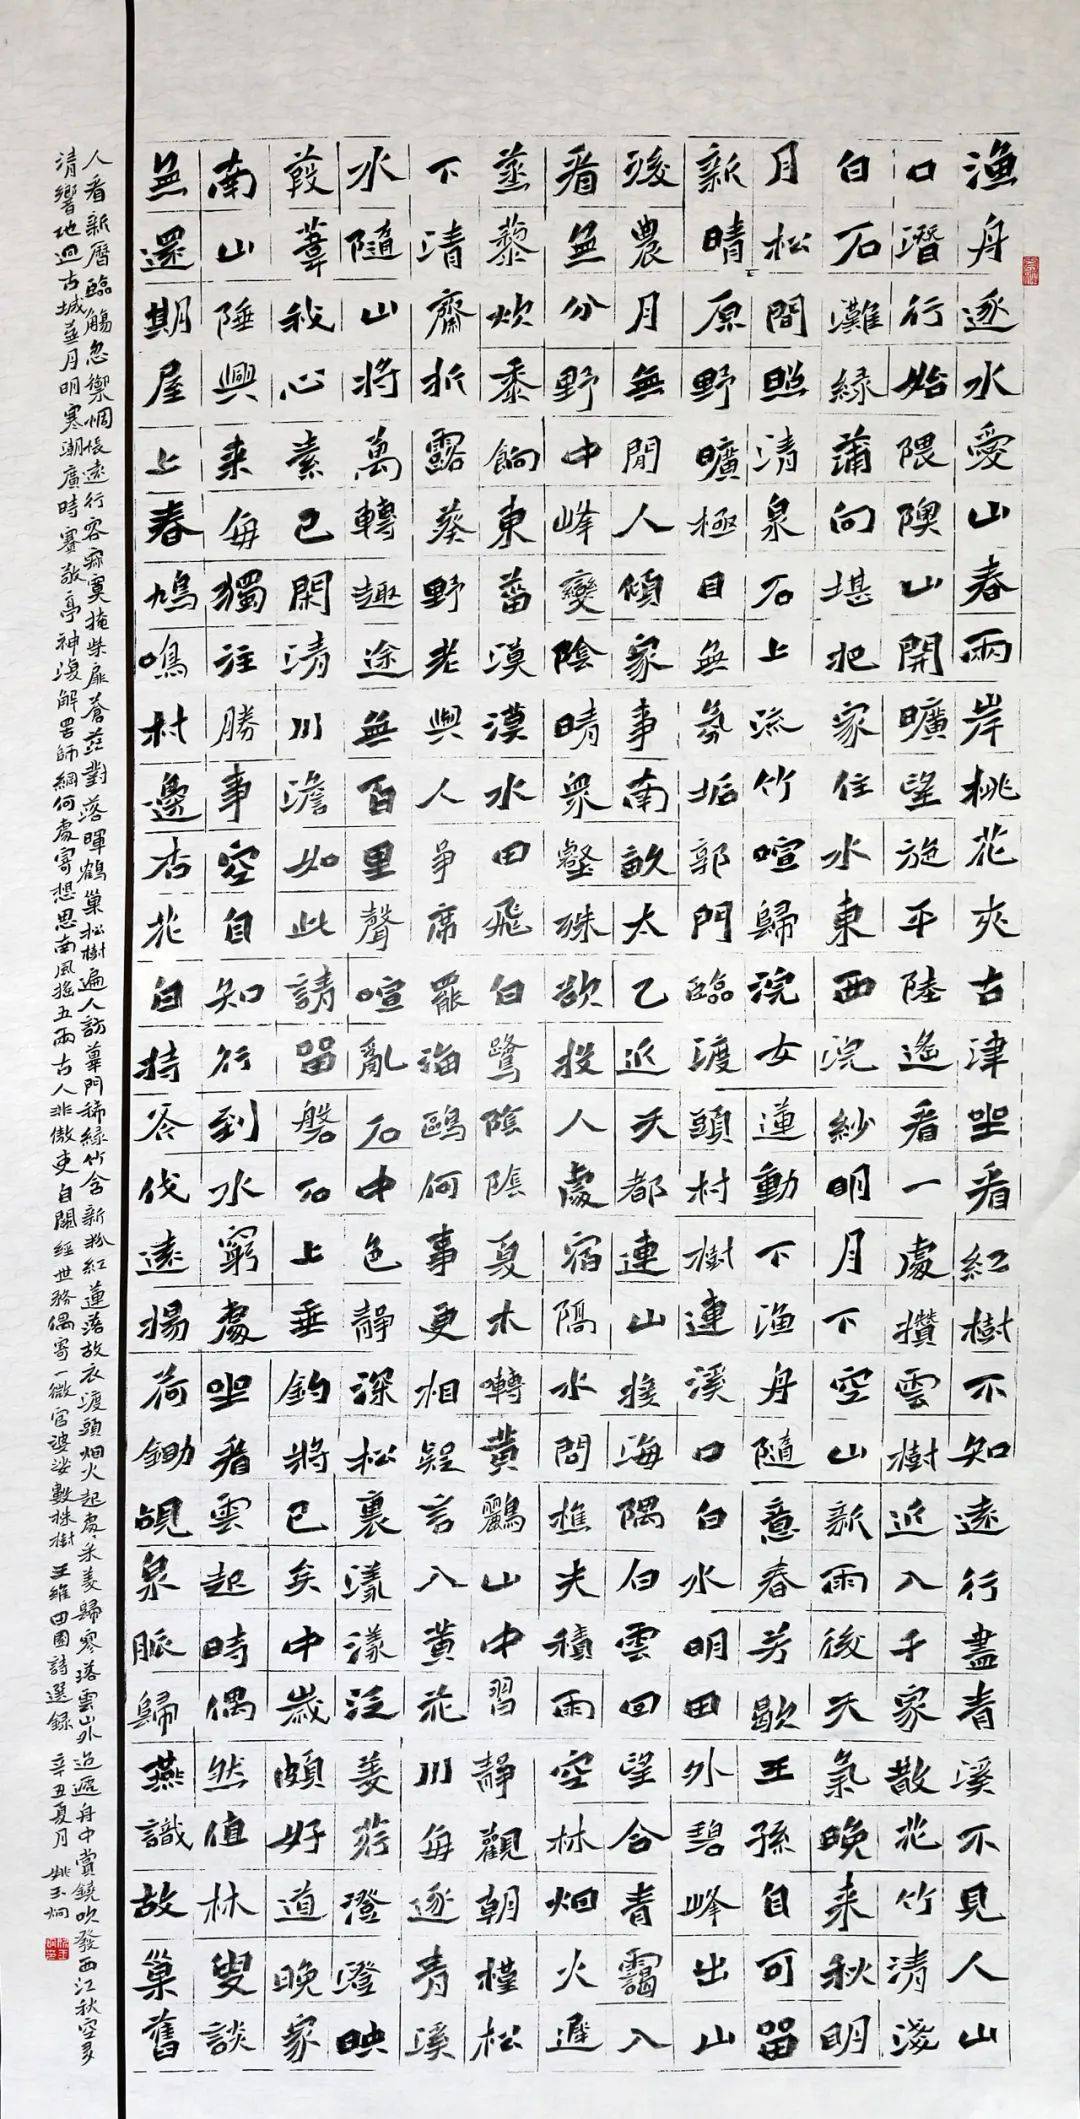 漁舟逐水愛山春兩岸桃花夾古津坐看紅樹不知遠行盡青溪不見人山
口潛行始隈隩山開曠望旋平陸遙看一處攢雲樹近入千家散花竹清淺
白石灘綠蒲向堪把家住水東西浣紗明月下空山新雨後天氣晚来秋明
月松間照清泉石上流竹喧歸浣女蓮動下漁舟隨意春芳歇王孫自可留
新晴原野曠極目無氛垢郭門臨渡頭村樹連溪口白水明田外碧峰出山
後農月無閒人傾家事南畝太乙近天都連山接海隅白雲回望合青靄入
看無分野中峰變陰晴衆壑殊欲投人處宿隔水問樵夫積雨空林烟火遲
蒸藜炊黍餉東菑漠漠水田飛白鷺陰陰夏木囀黃鸝山中習靜觀朝槿松
下清齋折露葵野老與人爭席罷海鷗何事更相疑言入黃花川每逐青溪
水隨山將萬轉趣途無百里聲喧亂石中色靜深松裏漾漾泛菱荇澄澄映
葭葦我心素已閑清川澹如此請留磐石上垂釣將已矣中歲頗好道晚家
南山陲興来每獨往勝事空自知行到水窮處坐看雲起時偶然值林叟談
無還期屋上春鳩鳴村邊杏花白持斧伐遠揚荷鋤覘泉脈歸燕識故巢舊
人看新曆臨觴忽禦惆悵遠行客寂寞掩柴扉蒼茫對落暉鶴巢松樹遍人訪蓽門稀綠竹含新粉紅蓮落故衣渡頭烟火起處々采菱歸寒塔雲山外迢遞舟中賞鐃吹發西江秋空多
清響地迥古城蕪月明寒潮廣時賽敬亭神復解罟師網何處寄想思南風搖五兩古人非傲吏自闕經世務偶寄一微官婆娑數株樹 王維田園詩選錄 辛丑夏月 姚玉炯